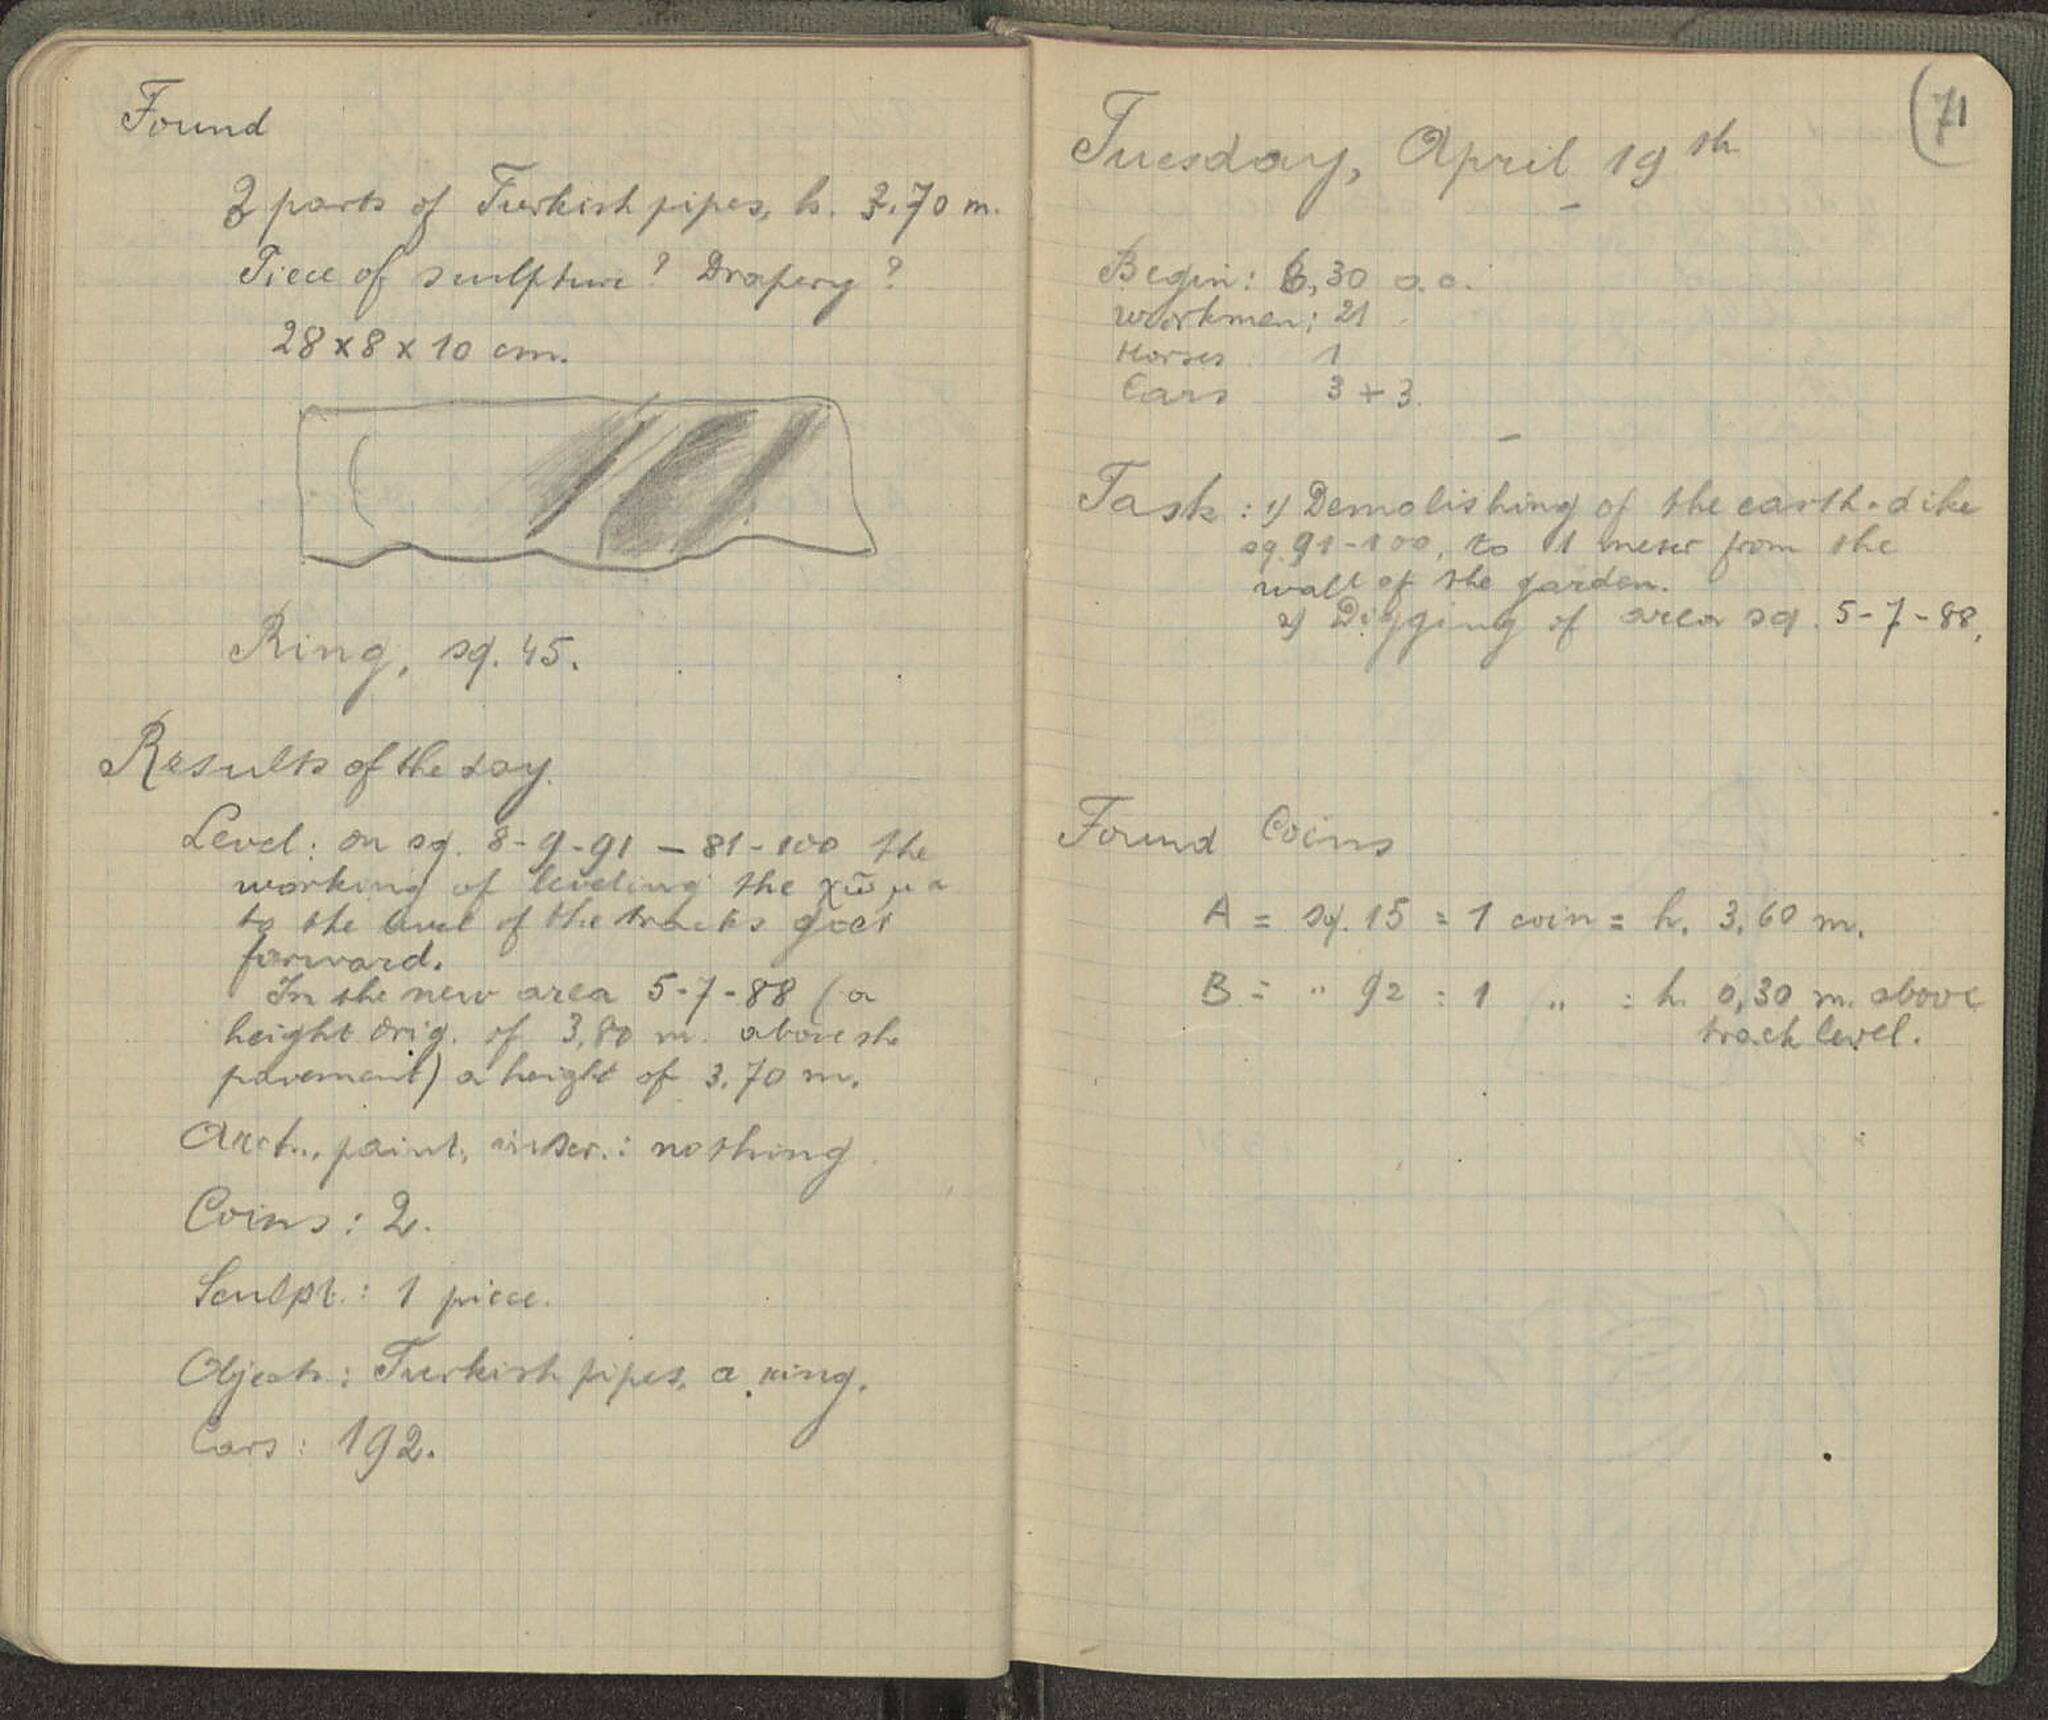 Found
2 parts of Turkish pipes, h. 3,70 m.
Piece of sculpture? Drapery?
28 x 8 x 10 cm.
Ring, sq. 45.
Results of the day.
Level: on sq. 8-9-91 – 81-100 the
working of leveling the χῶμα
to the level of the tracks goes
forward.
In the new area 5-7-88 (a
height orig. of 3,80 m. above the
pavement) a height of 3,70 m.
Arch., paint., inscr.: nothing.
Coins: 2.
Sculpt.: 1 piece.
Objects: Turkish pipes, a ring.
Cars: 192.
(71
Tuesday, April 19th
–
Begin: 6,30
workmen: 21
Horses 1
Cars 3 + 3.
–
Task: 1) Demolishing of the earth-dike
sq. 91-100, to 1 meter from the
wall of the garden.
2) Digging of area sq. 5-7-88.
Found Coins
A = sq. 15 = 1 coin = h. 3,60 m.
B = " 92 = 1 " = h. 0,30 m. above
track level.